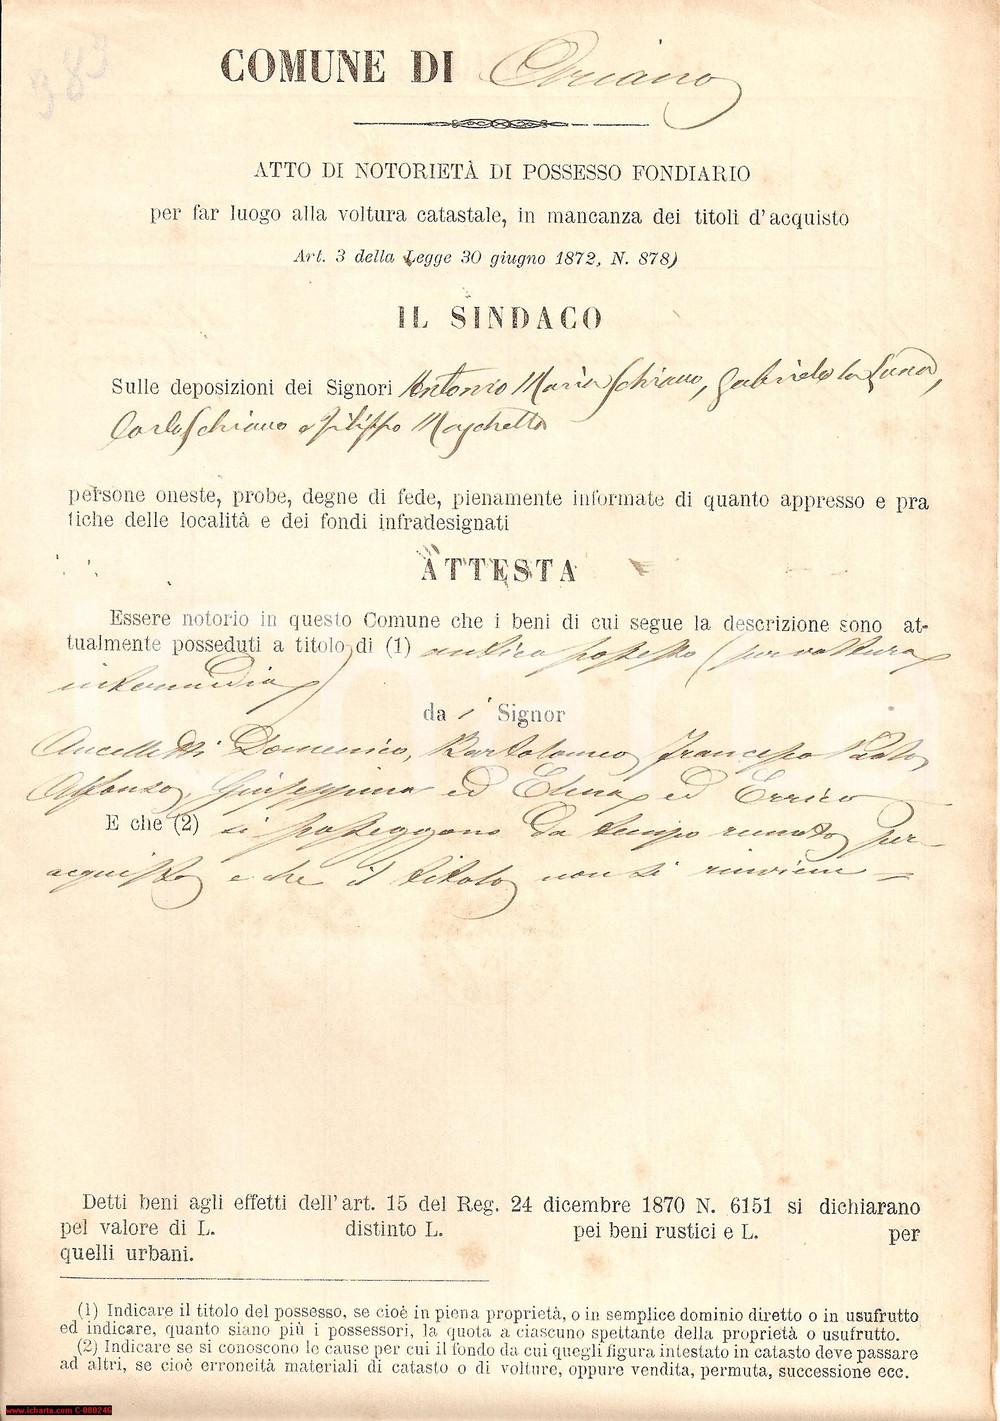 383
COMUNE DI Ariano
ATTO DI NOTORIETÀ DI POSSESSO FONDIARIO
per far luogo alla voltura catastale, in mancanza dei titoli d'acquisto
Art. 3 della Legge 30 giugno 1872, N. 878)
IL SINDACO
Sulle deposizioni dei Signori Antonio Maria Schiavo, Gabriele la Luna,
Carlo Schiavo e Filippo Maschetto
persone oneste, probe, degne di fede, pienamente informate di quanto appresso e pra
tiche delle località e dei fondi infradesignati
ATTESTA
Essere notorio in questo Comune che i beni di cui segue la descrizione sono at-
tualmente posseduti a titolo di (1) antico possesso (per voltura
intermedia)
da i Signor
Aucelletti Domenico, Bartolomeo Francesco
Alfonso, Giuseppina ed Elena ed Errico
E che (2) si posseggono da tempo remoto per
acquisto e che il titolo non si rinviene
Detti beni agli effetti dell'art. 15 del Reg. 24 dicembre 1870 N. 6151 si dichiarano
pel valore di L. distinto L. pei beni rustici e L. per
quelli urbani.
(1) Indicare il titolo del possesso, se cioè in piena proprietà, o in semplice dominio diretto o in usufrutto
ed indicare, quanto siano più i possessori, la quota a ciascuno spettante della proprietà o usufrutto.
(2) Indicare se si conoscono le cause per cui il fondo da cui quegli figura intestato in catasto deve passare
ad altri, se cioè erroneità materiali di catasto o di volture, oppure vendita, permuta, successione ecc.
www.icharta.com C-080246